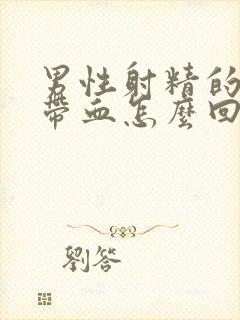 男性射精的
帶血怎麼回
劉答